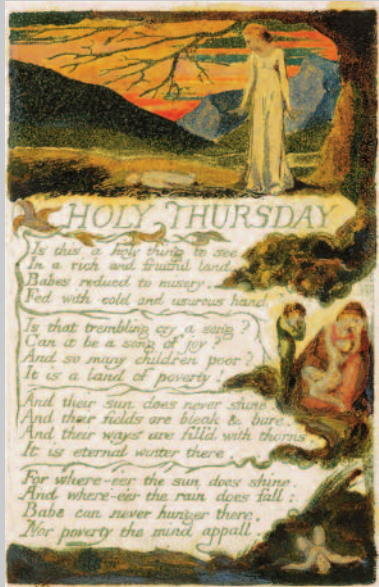 HOLY THURSDAY
Is this a holy thing to see.
In a rich and fruitful land.
Babes reduced to misery.
Fed with cold and usurous hand
Is that trembling cry a song?
Can it be a song of joy?
And so many children poor?
It is a land of poverty!
And their sun does never shine.
And their fields are bleak & bare.
And their ways are fill'd with thorns
It is eternal winter there.
For where-e'er the sun does shine.
And where-e'er the rain does fall:
Babe can never hunger there,
Nor poverty the mind appall.